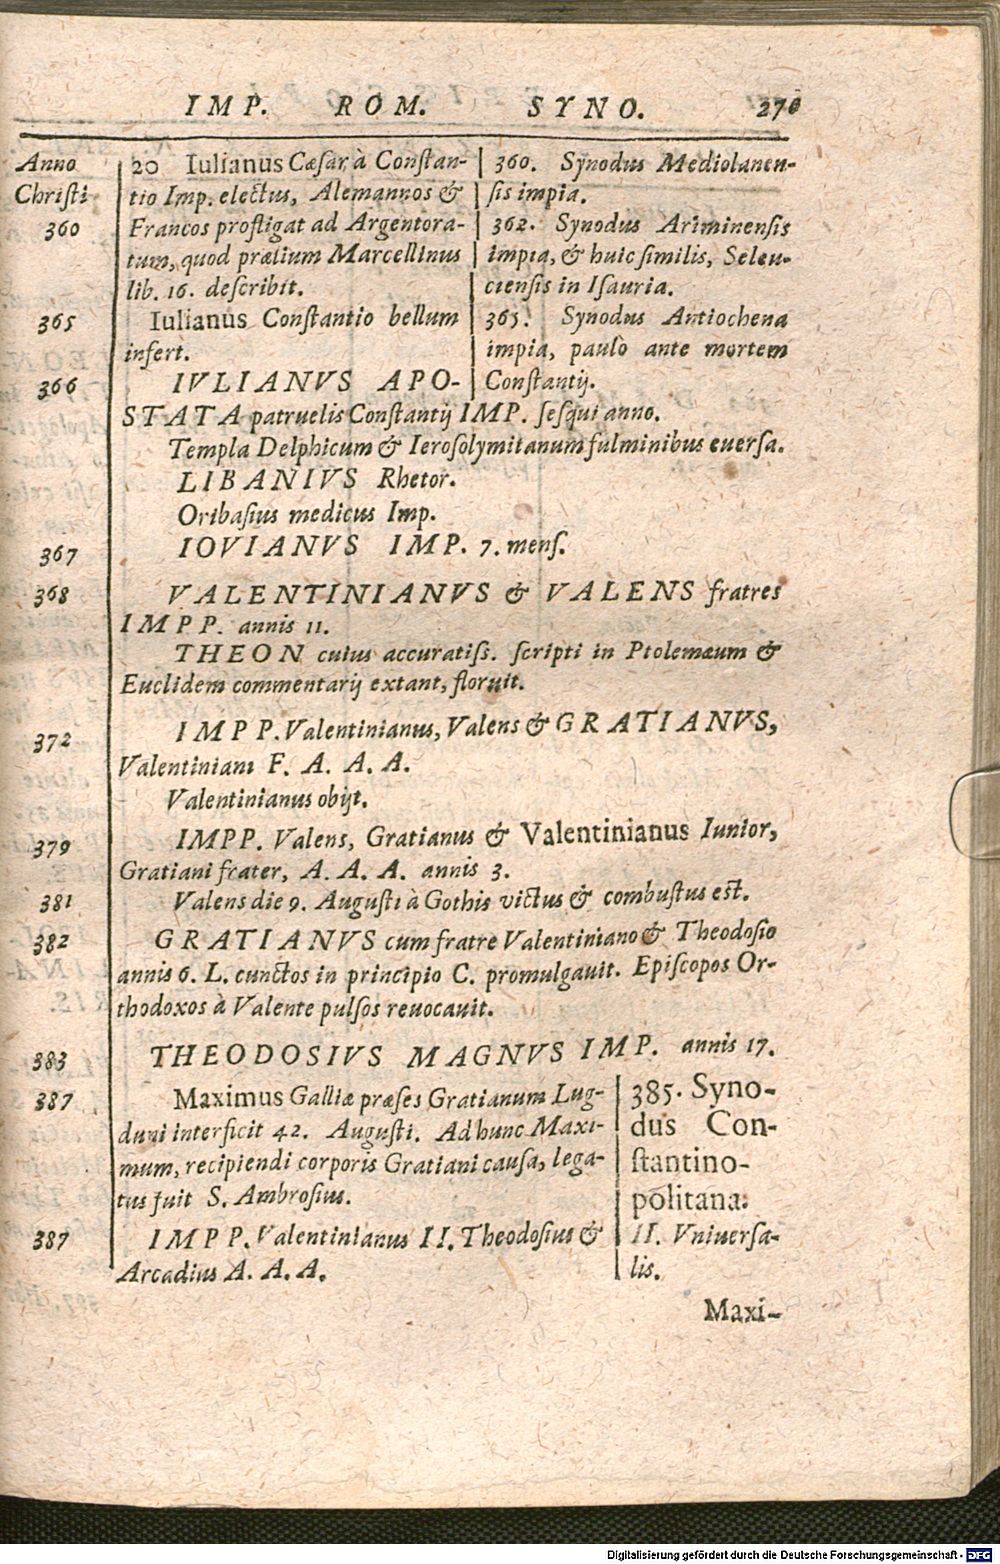 IMP. ROM. SYNO. 270
Anno
Christi
360
20 Iulianus Cæsar, à Constan-
tio Imp. electus, Alemannos &
Francos profligat ad Argentora-
tum, quod prælium Marcellinus
lib. 16. describit.
360. Synodus Mediolanen-
sis impia.
362. Synodus Ariminensis
impia, & huic similis, Seleu-
ciensis in Isauria.
365
Iulianus Constantio bellum
infert.
365. Synodus Antiochena
impia, paulò ante mortem
Constantij.
366
IVLIANVS APO-
STATA patruelis Constantij IMP. sesqui anno.
Templa Delphicum & Ierosolymitanum fulminibus euersa.
LIBANIVS Rhetor.
Oribasius medicus Imp.
367
IOVIANVS IMP. 7. mens.
368
VALENTINIANVS & VALENS fratres
IMPP. annis 11.
THEON cuius accuratiss. scripti in Ptolemæum &
Euclidem commentarij extant, floruit.
372
IMPP. Valentinianus, Valens & GRATIANVS,
Valentiniani F. A. A. A.
Valentinianus obijt.
379
IMPP. Valens, Gratianus & Valentinianus Iunior,
Gratiani frater, A. A. A. annis 3.
381
Valens die 9. Augusti à Gothis victus & combustus est.
382
GRATIANVS cum fratre Valentiniano & Theodosio
annis 6. L. cunctos in principio C. promulgauit. Episcopos Or-
thodoxos à Valente pulsos reuocauit.
383
THEODOSIVS MAGNVS IMP. annis 17.
387
Maximus Galliæ præses Gratianum Lug-
duni interficit 42. Augusti. Ad hunc Maxi-
mum, recipiendi corporis Gratiani causa, lega-
tus fuit S. Ambrosius.
387
IMPP. Valentinianus II. Theodosius &
Arcadius A. A. A.
385. Syno-
dus Con-
stantino-
politana.
II. Vniuersa-
lis.
Maxi-
Digitalisierung gefördert durch die Deutsche Forschungsgemeinschaft - DFG